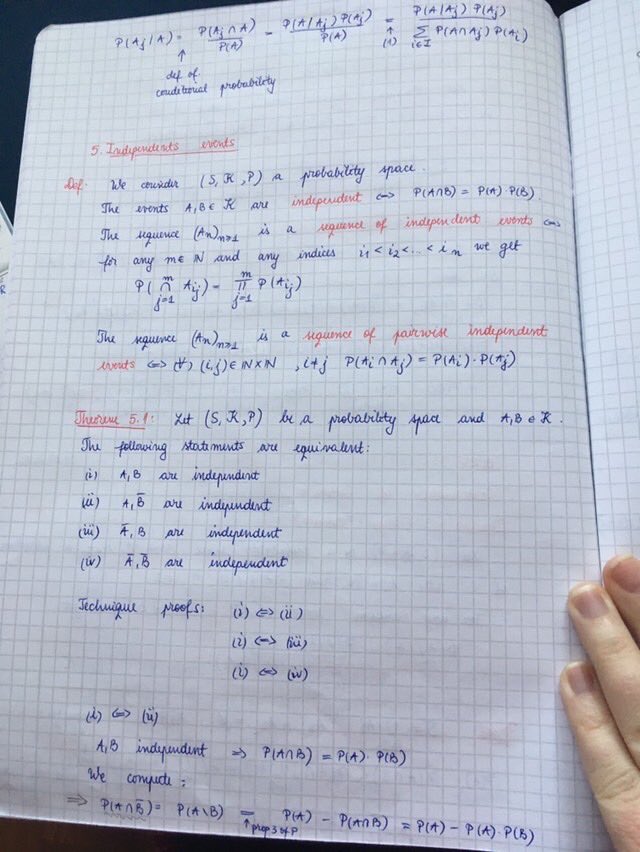 P(Aj/A) = P(Aj ∩ A) / P(A) = P(A/Aj) P(Aj) / P(A) = P(A/Aj) P(Aj) / Σ i∈I P(A∩Aj) P(Ai)
↑ ↑
def of (1)
conditional probability
5. Independents events
Def: We consider (S, K, P) a probability space.
The events A, B ∈ K are independent ⇔ P(A∩B) = P(A)·P(B).
The sequence (An)n≥1 is a sequence of independent events ⇔
for any m ∈ ℕ and any indices i1 < i2 < ... < in we get
P( m ∩ j=1 Aij) = m ∏ j=1 P(Aij)
The sequence (An)n≥1 is a sequence of pairwise independent
events ⇔ (∀) (i,j) ∈ ℕ×ℕ , i≠j P(Ai ∩ Aj) = P(Ai)·P(Aj)
Theorem 5.1: Let (S, K, P) be a probability space and A, B ∈ K.
The following statements are equivalent:
(i) A, B are independent
(ii) A, B̄ are independent
(iii) Ā, B are independent
(iv) Ā, B̄ are independent
Technique proofs: (i) ⇔ (ii)
(i) ⇔ (iii)
(i) ⇔ (iv)
(i) ⇔ (ii)
A, B independent ⇒ P(A∩B) = P(A)·P(B)
We compute:
⇒ P(A∩B̄) = P(A\B) = P(A) - P(A∩B) = P(A) - P(A)·P(B)
↑ prop 3 of P